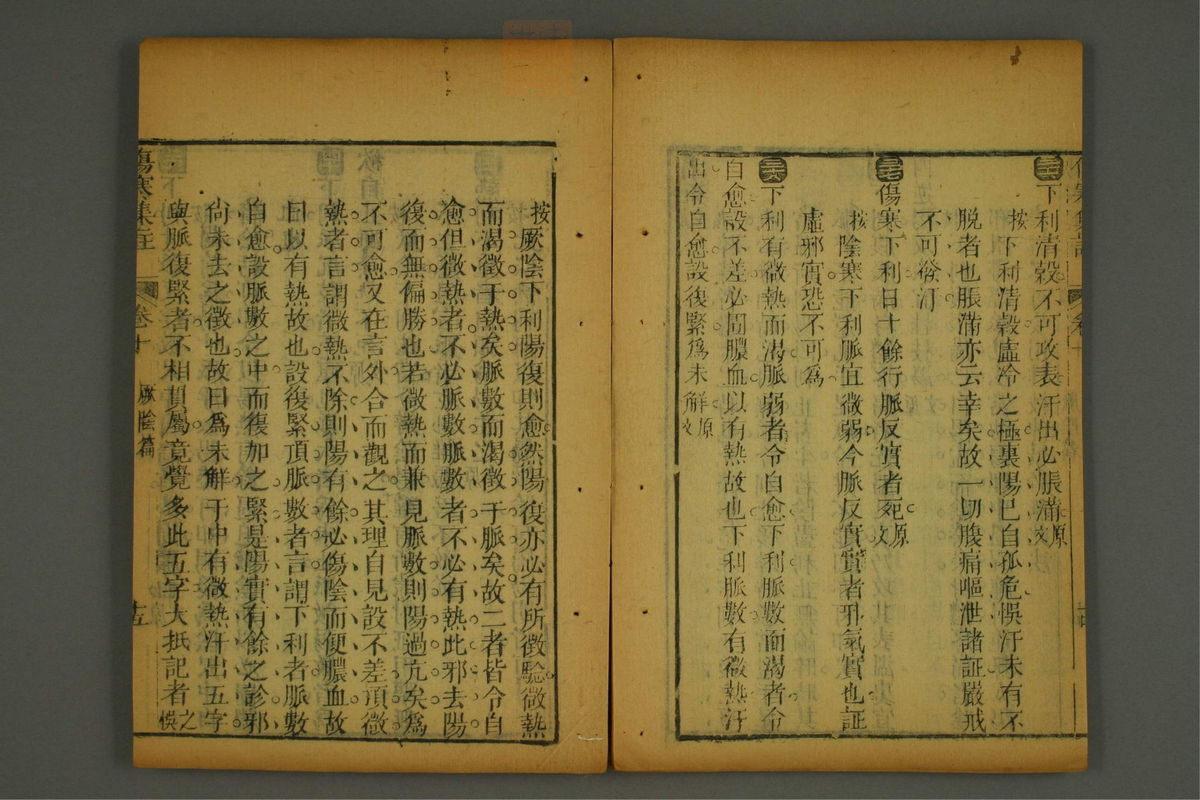 傷寒集註 卷十
三六 下利清穀不可攻表汗出必脹滿原文
按下利清穀虛冷之極裏陽已自孤危悞汗未有不
脫者也脹滿亦云幸矣故一切腹痛嘔泄諸証嚴戒
不可發汗
三七 傷寒下利日十餘行脈反實者死原文
按陰寒下利脈宜微弱今脈反實實者邪氣實也証
虛邪實恐不可為
三八 下利有微熱而渴脈弱者令自愈下利脈數而渴者令
自愈設不差必圊膿血以有熱故也下利脈數有微熱汗
出令自愈設復緊爲未解原文
按厥陰下利陽復則愈然陽復亦必有所徵驗微熱
而渴徵于熱矣脈數而渴徵于脈矣故二者皆令自
愈但微熱者不必脈數脈數者不必有熱此邪去陽
復而無偏勝也若微熱而兼見脈數則陽過亢矣爲
不可愈又在言外合而觀之其理自見設不差頂微
熱者言謂微熱不除則陽有餘必傷陰而便膿血故
曰以有熱故也設復緊頂脈數者言謂下利者脈數
自愈設脈數之中而復加之緊是陽實有餘之診邪
尙未去之徵也故曰爲未解于中有微熱汗出五字
與脈復緊者不相貫屬竟覺多此五字大抵記者之悞
傷寒集註 卷十 厥陰篇 十五